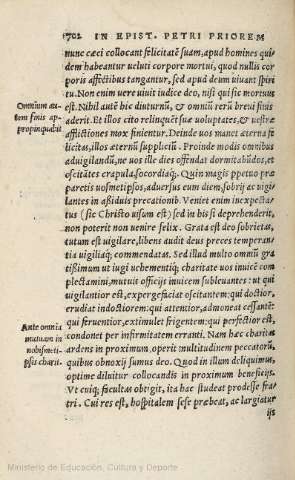 1702 IN EPIST. PETRI PRIOREM
nunc cæci collocant felicitatē suam, apud homines qui-
dem habeantur ueluti corpore mortui, quod nullis cor
poris affectibus tangantur, sed apud deum uiuant spiri
tu. Non enim uere uiuit iudice deo, nisi qui sic mortuus
est. Nihil autē hic diuturnū, & omniū rerū breui finis
Omnium au-
tem finis ap-
propinquabit
aderit. Et illos cito relinquēt suæ uoluptates, & uestræ
afflictiones mox finientur. Deinde uos manet æterna fe
licitas, illos æternū suppliciū. Proinde modis omnibus
aduigilandū, ne uos ille dies offendat dormitabūdos, et
oscitātes crapula, socordiaq;. Quin magis ppetuo præ
paretis uosmetipsos, aduersus eum diem, sobrij ac uigi
lantes in aßiduis precationib. Veniet enim inexpecta-
tus (sic Christo uisum est) sed in his si deprehenderit,
non poterit non uenire felix. Grata est deo sobrietas,
tutum est uigilare, libens audit deus preces temperan-
tia uigiliaq; commendatas. Sed illud multo omniū gra
tißimum ut iugi uehementiq; charitate uos inuicē com
plectamini, mutuis officijs inuicem subleuantes: ut qui
uigilantior est, expergefaciat oscitantem: qui doctior,
erudiat indoctiorem: qui attentior, admoneat cessantē:
Ante omnia
mutuam in
uobismeti-
psis charit.
qui feruentior, extimulet frigentem: qui perfectior est,
condonet per infirmitatem erranti. Nam hæc charitas
ardens in proximum, operit multitudinem peccatorū,
quibus obnoxij sumus deo. Quod in illum deliquimus,
optime diluitur collocandis in proximum beneficijs.
Vt cuiq; facultas obtigit, ita hac studeat prodesse fra
tri. Cui res est, hospitalem sese præbeat, ac largiatur
ijs
Ministerio de Educación, Cultura y Deporte